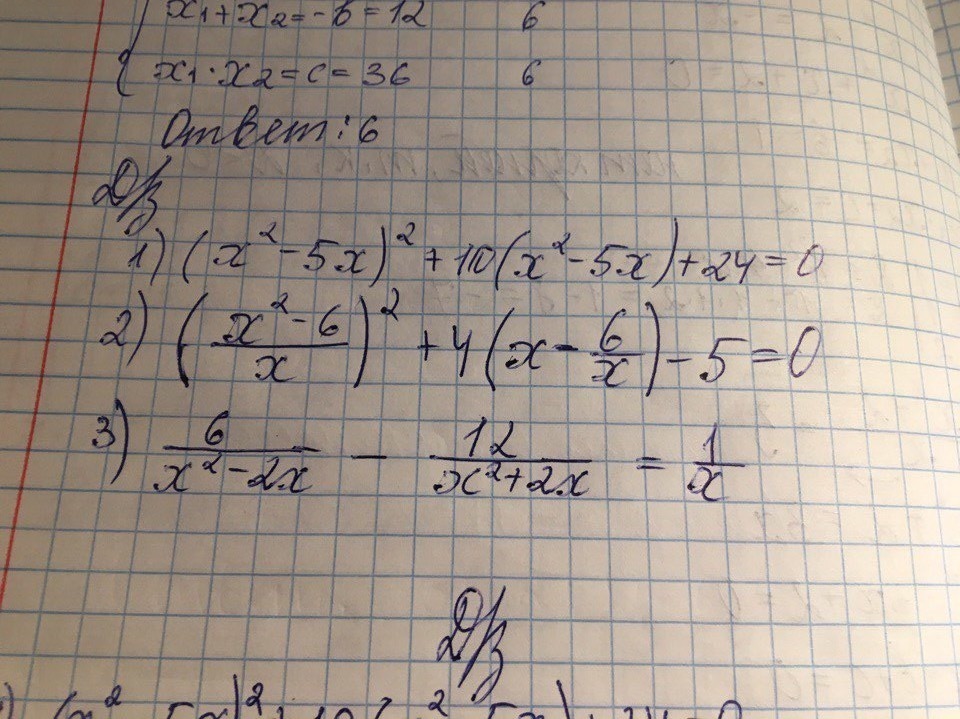 x₁+x₂=-b=12 6
x₁·x₂=c=36 6
Ответ: 6
Д/з
1) (x²-5x)²+10(x²-5x)+24=0
2) ((x²-6)/x)²+4(x-6/x)-5=0
3) 6/(x²-2x) - 12/(x²+2x) = 1/x
Д/з